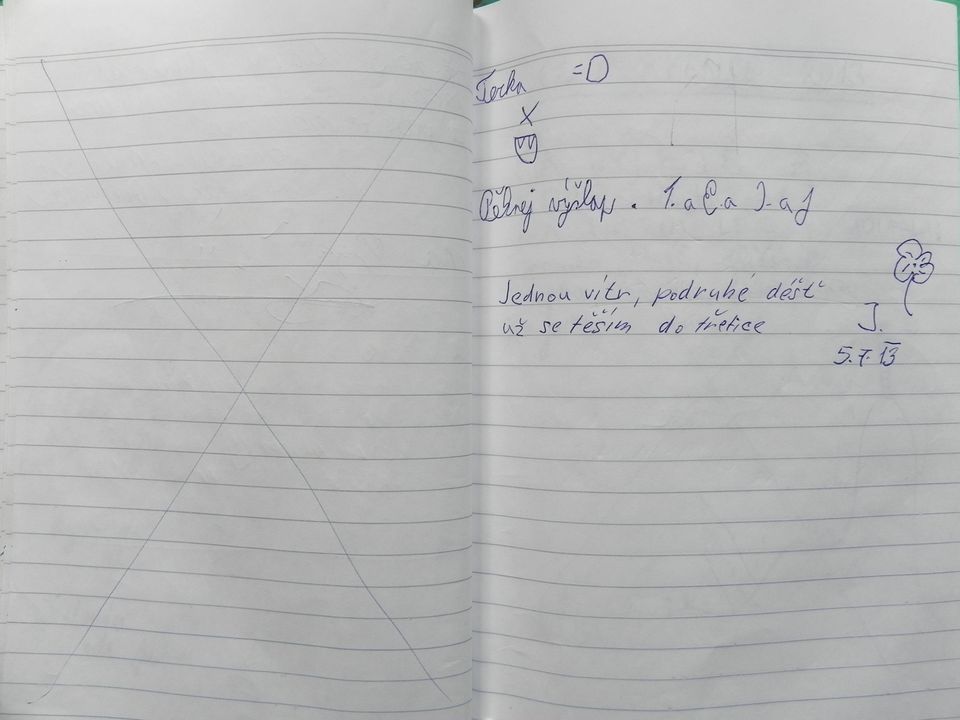 Terka =D
X
Pěknej výšlap. T. a
Jednou vítr, podruhé déšť
už se těším do třetice
J.
5.7.13